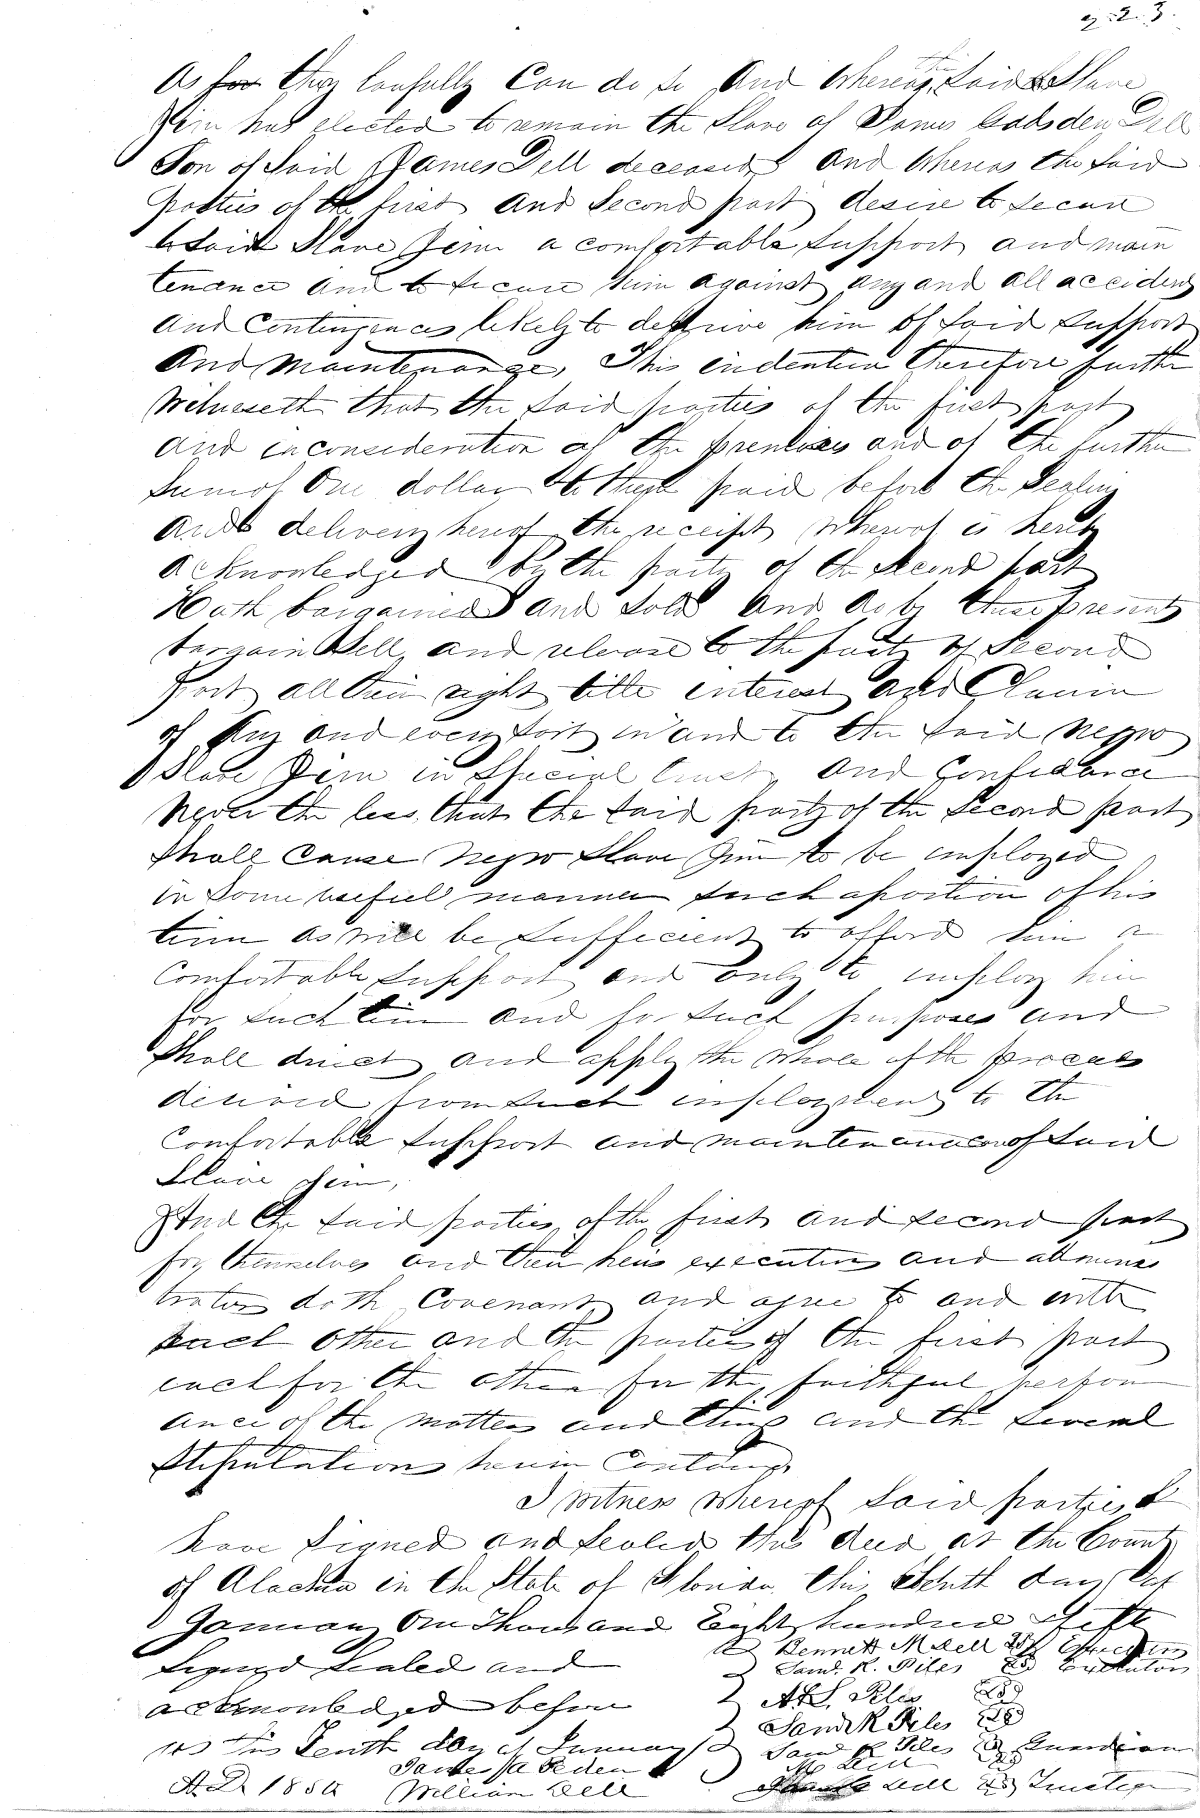 223
As for they lawfully Can do so And Whereas the Said Slave
Jim has elected to remain the Slave of James Gadsden Dell
Son of Said James Dell deceased And Whereas the Said
parties of the first And Second part desire to secure
to Said Slave Jim a comfortable support and main
tenance and to secure him against any and all accidents
And Contingences likely to deprive him of said support
And maintenance, This indenture therefore further
Witnesseth that the said parties of the first part
and in consideration of the premises and of the further
Sum of One dollar to them paid before the Sealing
and delivery hereof the receipt whereof is hereby
acknowledged by the party of the second part
Hath bargained And Sold And do by these presents
bargain Sell and release to the party of Second
part all their right title interest And Claim
of Any and every sort in and to the said negro
Slave Jim in Special trust And Confidance
Never the less that the said party of the second part
Shall Cause Negro Slave Jim to be employed
in Some usefull manner Such a portion of his
time as will be Sufficient to afford him a
Comfortable Support and only to employ him
for such time and for such purposes and
Shall direct and apply the whole of the proceeds
derived from such employment to the
Comfortable support and maintenance of Said
Slave Jim,
And the said parties of the first and second part
for themselves and their heirs executors and adminis
trators doth Covenant and agree to and with
each other and the parties of the first part
each for the other for the faithful perform
ance of the matters and things and the Several
Stipulations herein Contained
I witness whereof said parties
have signed and sealed this deed at the County
of Alachua in the State of Florida this day of
January One Thousand Eight hundred & fifty
Signed Sealed and Bennett M Dell Executors
acknowledged before Saml. R. Piles Executors
us this Tenth day of January A. L. Piles
A. D. 1850 Saml R Piles
James A Peden Saml R Piles Guardian
William Dell M Dell
Dell Trustee